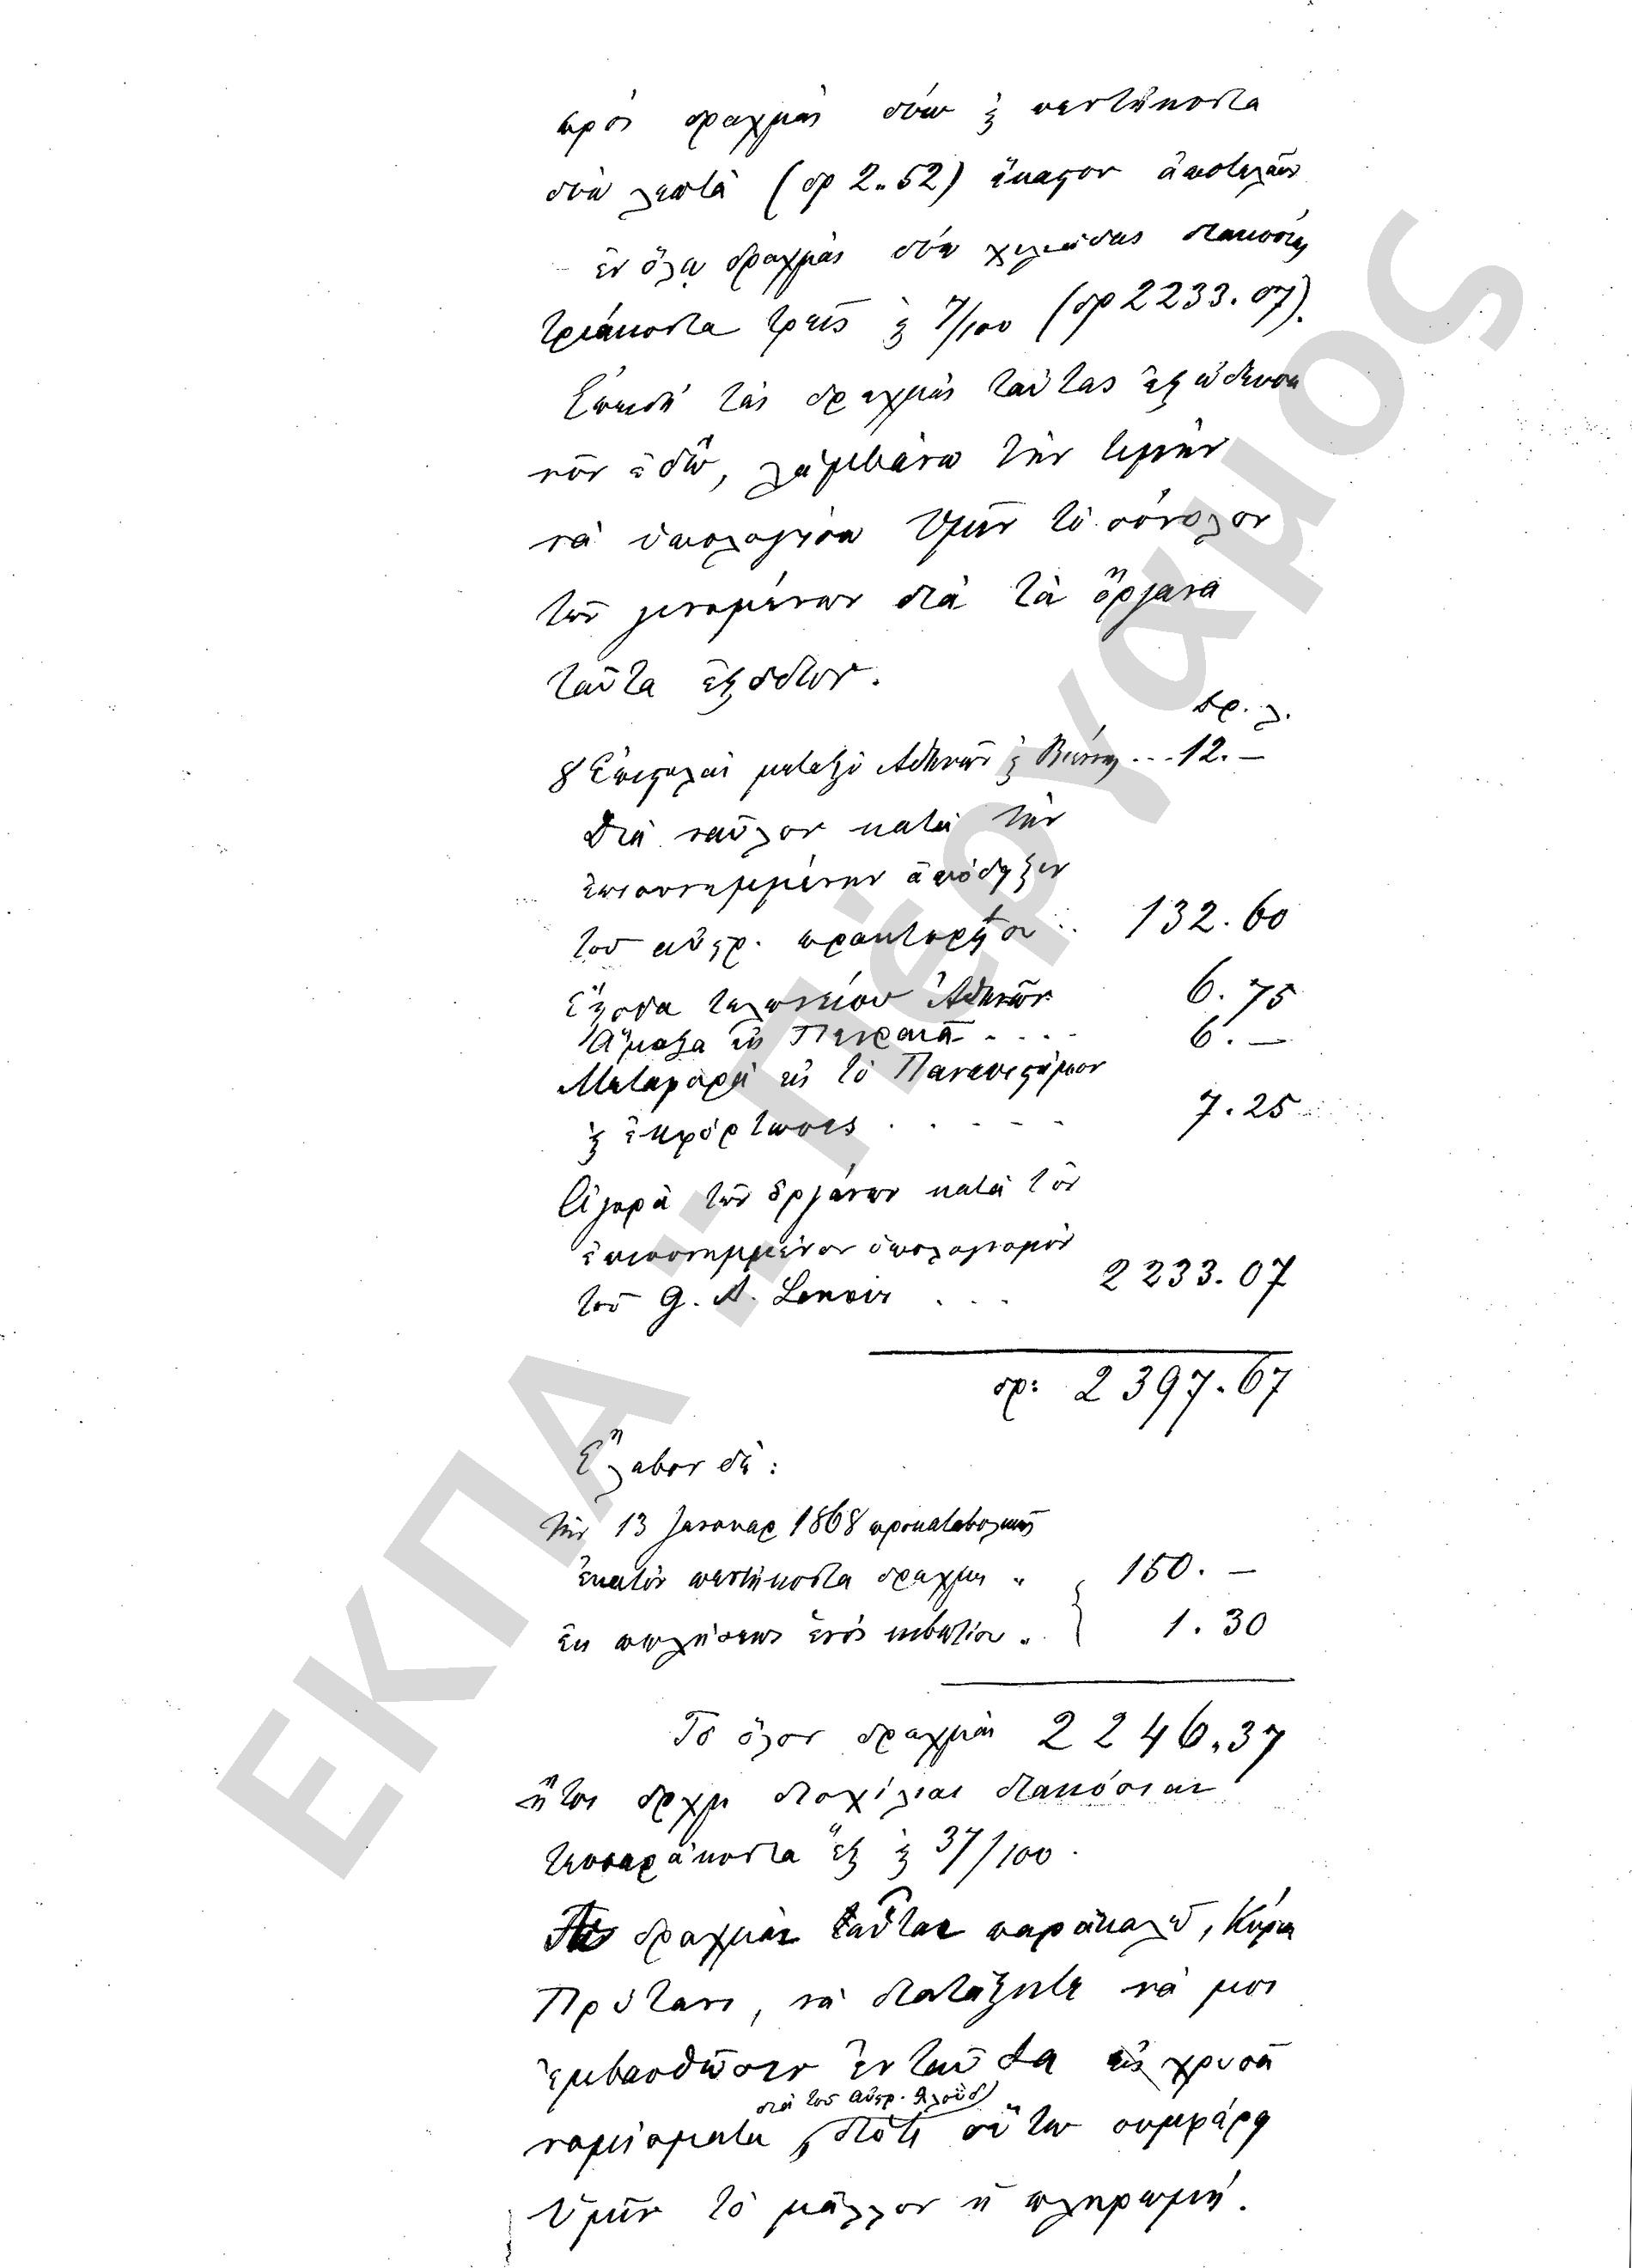 πρὸς δραχμὰς δύω ϗ πεντήκοντα
δύω λεπτὰ (δρ 2.52) ἕκαστον ἀποτελοῦν
ἐν ὅλῳ δραχμὰς δύω χιλιάδας διακοσίας
τριάκοντα τρεῖς ϗ 7/100 (δρ 2233.07).
Ἐπειδὴ τὰς δραχμὰς ταύτας ἐξώδευσα
νῦν ἐδῶ, λαμβάνω τὴν τιμὴν
νὰ ὑπολογίσω Ὑμῖν τὸ σύνολον
τῶν γενομένων διὰ τὰ ὄργανα
ταῦτα ἐξόδων.
Δρ. λ.
8 Ἐπιστολαὶ μεταξὺ Ἀθηνῶν ϗ Βιέννης ... 12.—
Διὰ ναῦλον κατὰ τὴν
ἐπισυνημμένην ἀπόδειξιν
τοῦ αὐστρ. πρακτορείου .. 132.60
Ἔξοδα τελωνείου Ἀθηνῶν 6.75
Ἅμαξα εἰς Πειραιᾶ .... 6.—
Μεταφορὰ εἰς τὸ Πανεπιστήμιον
ϗ ἐκφόρτωσις ..... 7.25
Ἀγορὰ τῶν ὀργάνων κατὰ τὸν
ἐπισυνημμένον ὑπολογισμὸν
τοῦ G. A. Lenoir ... 2233.07
δρ: 2397.67
Ἔλαβον δὲ:
τὴν 13 Ἰανουαρ 1868 προκαταβολικῶς
ἑκατὸν πεντήκοντα δραχμὰς „ 150.—
ἐκ πωλήσεως ἑνὸς κιβωτίου „ 1.30
Τὸ ὅλον δραχμαὶ 2246.37
ἤτοι δρχμ δισχίλιαι διακόσιαι
τεσσαράκοντα ἓξ ϗ 37/100.
δραχμὰς ταύτας παρακαλῶ, Κύριε
Πρύτανι, νὰ διατάξητε νὰ μοι
ἐμβασθῶσιν ἐνταῦθα εἰς χρυσᾶ
διὰ τοῦ αὐστρ. Λλοὺδ
νομίσματα, διότι οὕτω συμφέρει
Ὑμῖν τὸ μᾶλλον ἡ πληρωμή.
ΕΚΠΑ :: Πέργαμος